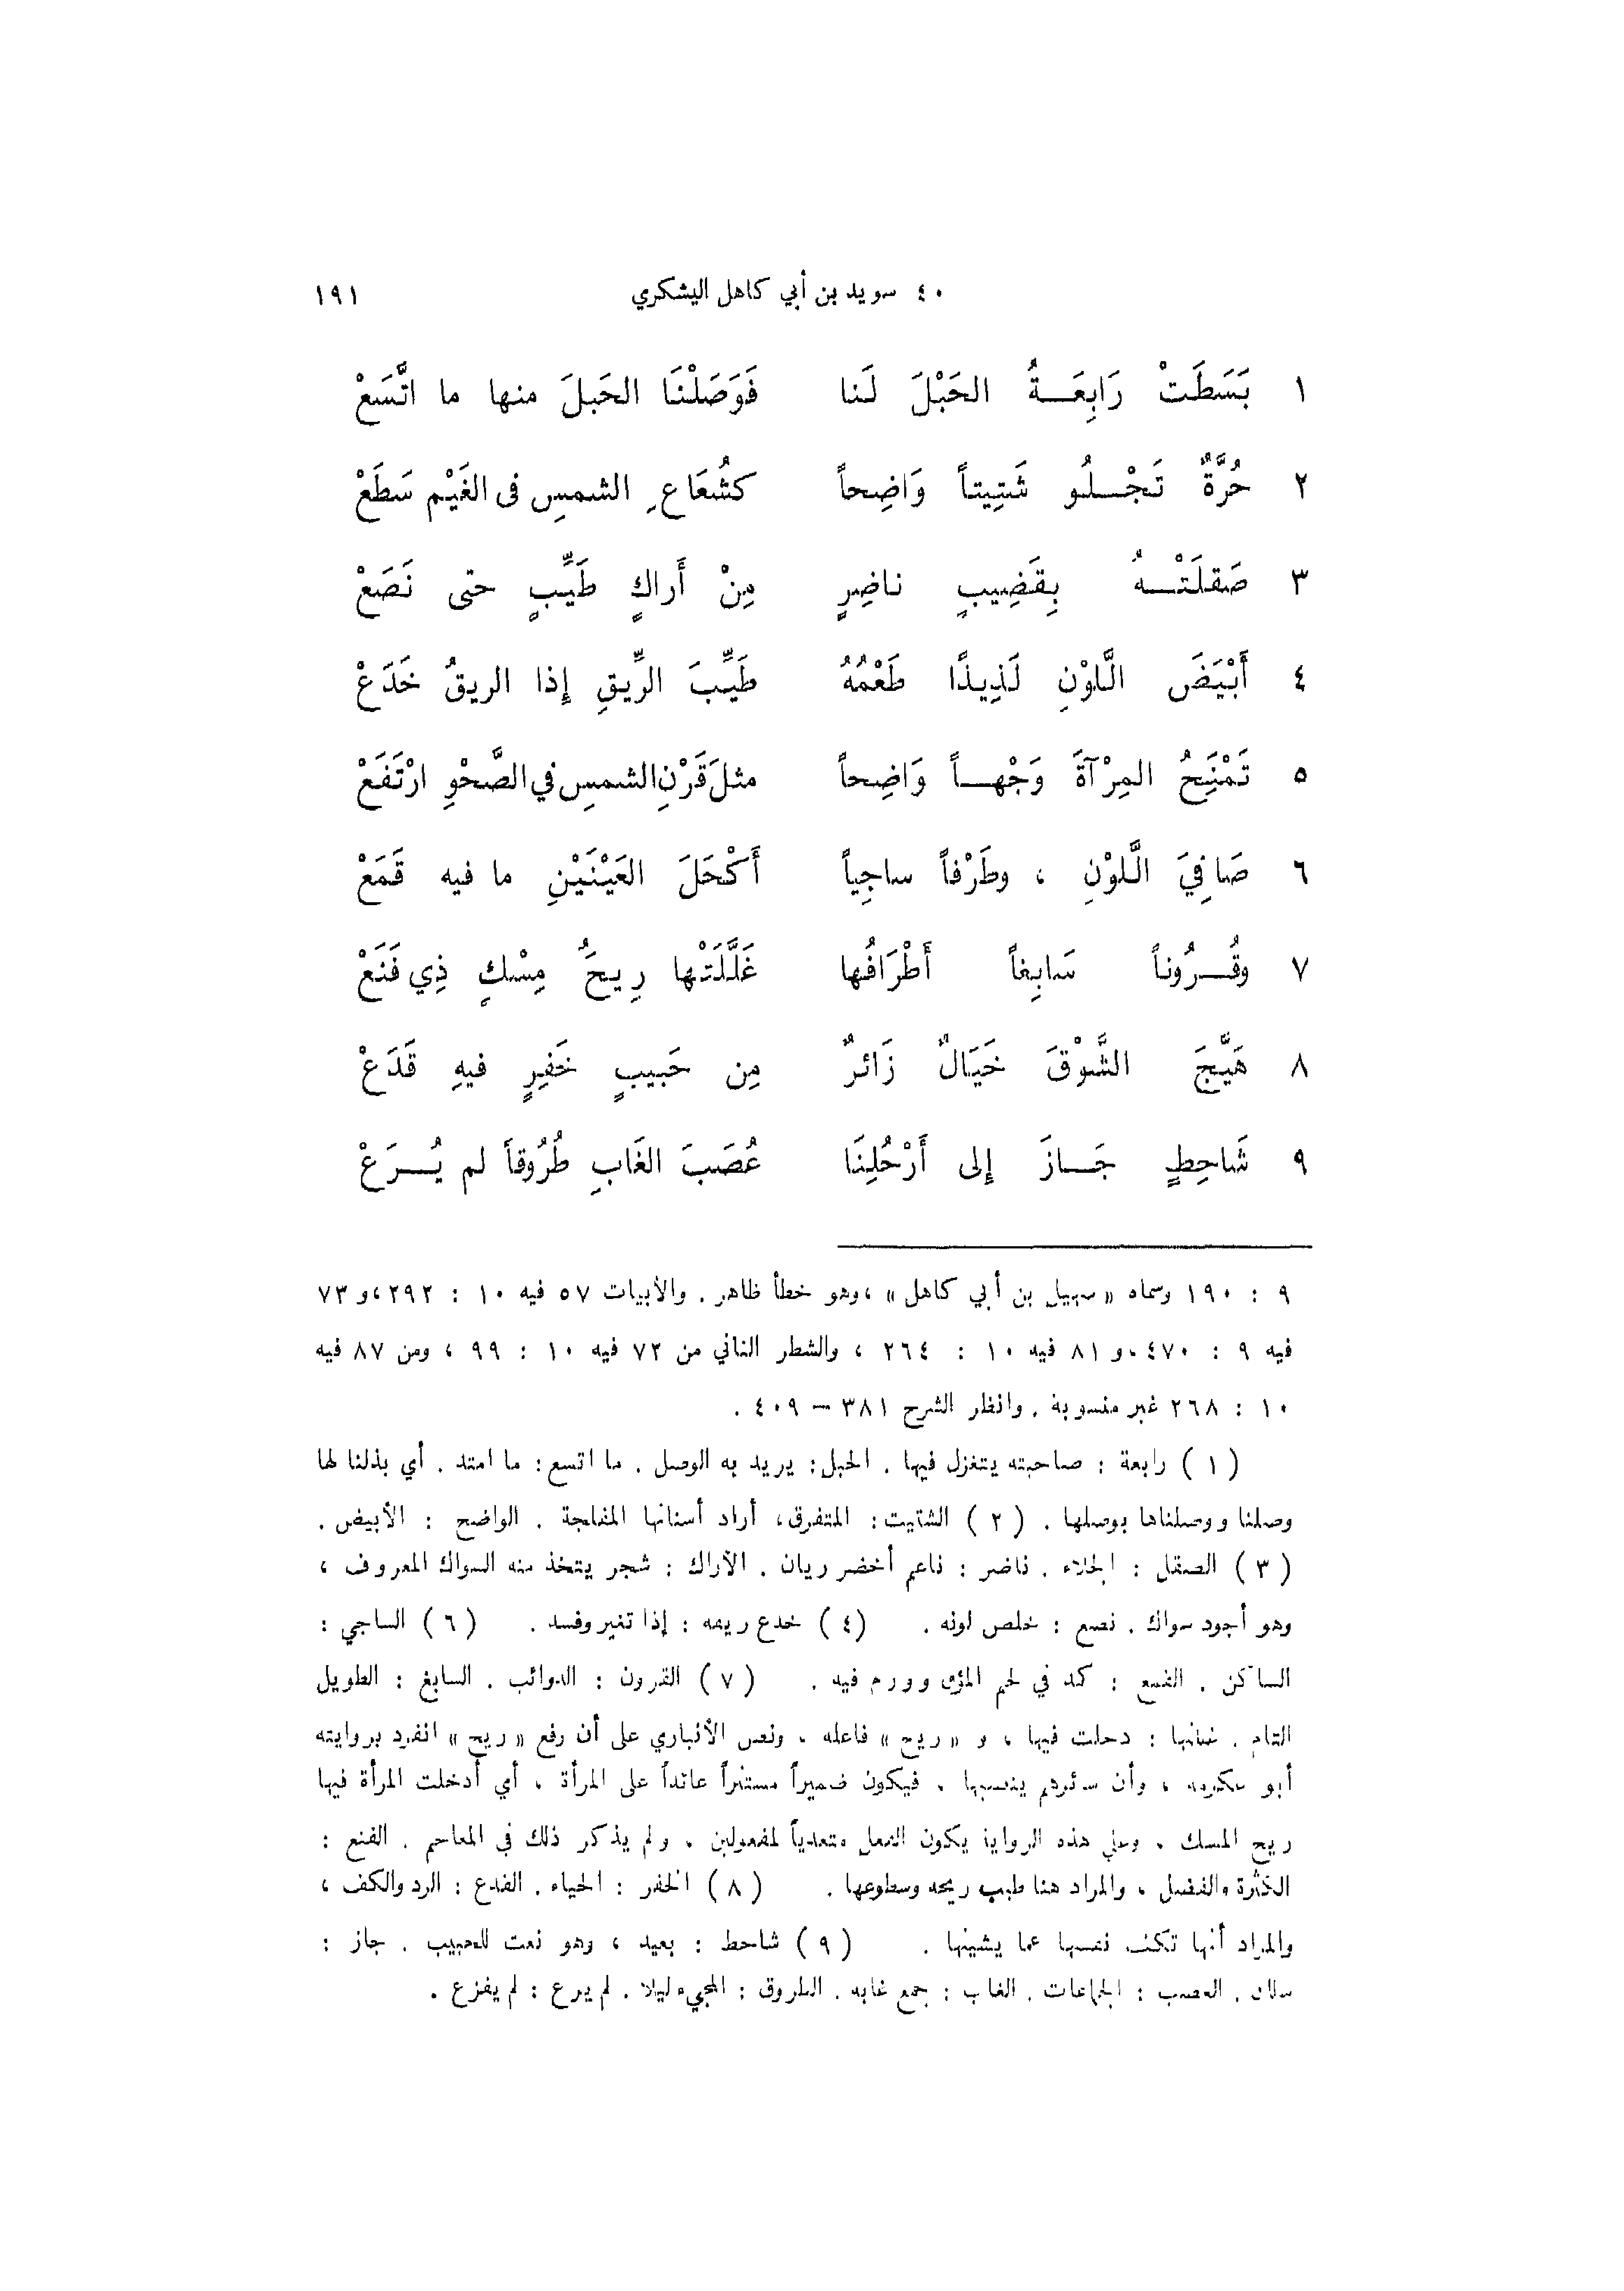 ٤٠ سويد بن أبي كاهل اليشكري ١٩١
١ بَسَطَتْ رَابِعَةُ الحَبْلَ لَنا فَوَصَلْنَا الحَبلَ منها ما اتَّسَعْ
٢ حُرَّةٌ تَجْلُو شَتِيتاً وَاضِحاً كشُعَاعِ الشمسِ فى الغَيْم سَطَعْ
٣ صَقلَتْهُ بِقَضِيبٍ ناضِرٍ مِنْ أَراكٍ طَيِّبٍ حتى نَصَعْ
٤ أَبْيَضَ الَّلوْنِ لَذِيذًا طَعْمُهُ طَيِّبَ الرِّيقِ إِذا الريقُ خَدَعْ
٥ تَمْنَحُ المِرْآةَ وَجْهاً وَاضِحاً مثلَ قَرْنِ الشمسِ في الصَّحْوِ ارْتَفَعْ
٦ صَافِيَ الَّلوْنِ ، وطَرْفاً ساجِياً أَكْحَلَ العَيْنَيْنِ ما فيه قَمَعْ
٧ وقُرُوناً سَابِغاً أَطْرَافُها غَلَّلَتْها رِيحُ مِسْكٍ ذِي فَنَعْ
٨ هَيَّجَ الشَّوْقَ خَيَالٌ زَائرٌ مِن حَبيبٍ خَفِرٍ فيهِ قَدَعْ
٩ شَاحِطٍ جَازَ إِلى أَرْحُلِنَا عُصَبَ الغَابِ طُرُوقاً لم يُرَعْ
٩ : ١٩٠ وسماه « سهيل بن أبي كاهل » ، وهو خطأ ظاهر . والأبيات ٥٧ فيه ١٠ : ٢٩٢ ، و ٧٣
فيه ٩ : ٤٧٠ ، و ٨١ فيه ١٠ : ٢٦٤ ، والشطر الثاني من ٧٢ فيه ١٠ : ٩٩ ، ومن ٨٧ فيه
١٠ : ٢٦٨ غير منسوبة . وانظر الشرح ٣٨١ – ٤٠٩ .
( ١ ) رابعة : صاحبته يتغزل فيها . الحبل : يريد به الوصل . ما اتسع : ما امتد . أي بذلنا لها
وصلنا ووصلناها بوصلها . ( ٢ ) الشتيت : المتفرق ، أراد أسنانها المفلجة . الواضح : الأبيض .
( ٣ ) الصقل : الجلاء . ناضر : ناعم أخضر ريان . الأراك : شجر يتخذ منه السواك المعروف ،
وهو أجود سواك . نصع : خلص لونه . ( ٤ ) خدع ريقه : إذا تغير وفسد . ( ٦ ) الساجي :
الساكن . القمع : كمد في لحم المؤق وورم فيه . ( ٧ ) القرون : الذوائب . السابغ : الطويل
التام . غللتها : دخلت فيها ، و « ريح » فاعله ، ونص الأنباري على أن رفع « ريح » انفرد بروايته
أبو عكرمة ، وأن سائرهم ينصبها ، فيكون ضميراً مستتراً عائداً على المرأة ، أي أدخلت المرأة فيها
ريح المسك ، وعلى هذه الرواية يكون الفعل متعدياً لمفعولين ، ولم يذكر ذلك في المعاجم . الفنع :
الكثرة والفضل ، والمراد هنا طيب ريحه وسطوعها . ( ٨ ) الخفر : الحياء . القدع : الرد والكف ،
والمراد أنها تكف نفسها عما يشينها . ( ٩ ) شاحط : بعيد ، وهو نعت للحبيب . جاز :
سلك . العصب : الجماعات . الغاب : جمع غابه . الطروق : المجيء ليلا . لم يرع : لم يفزع .